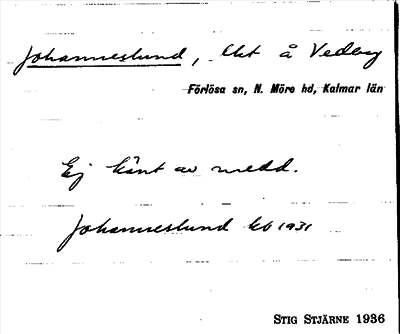 Johanneslund, lht å Vedby
Förlösa sn, N. Möre hd, Kalmar län
Ej känt av medd.
Johanneslund kb 1931
STIG STJÄRNE 1936